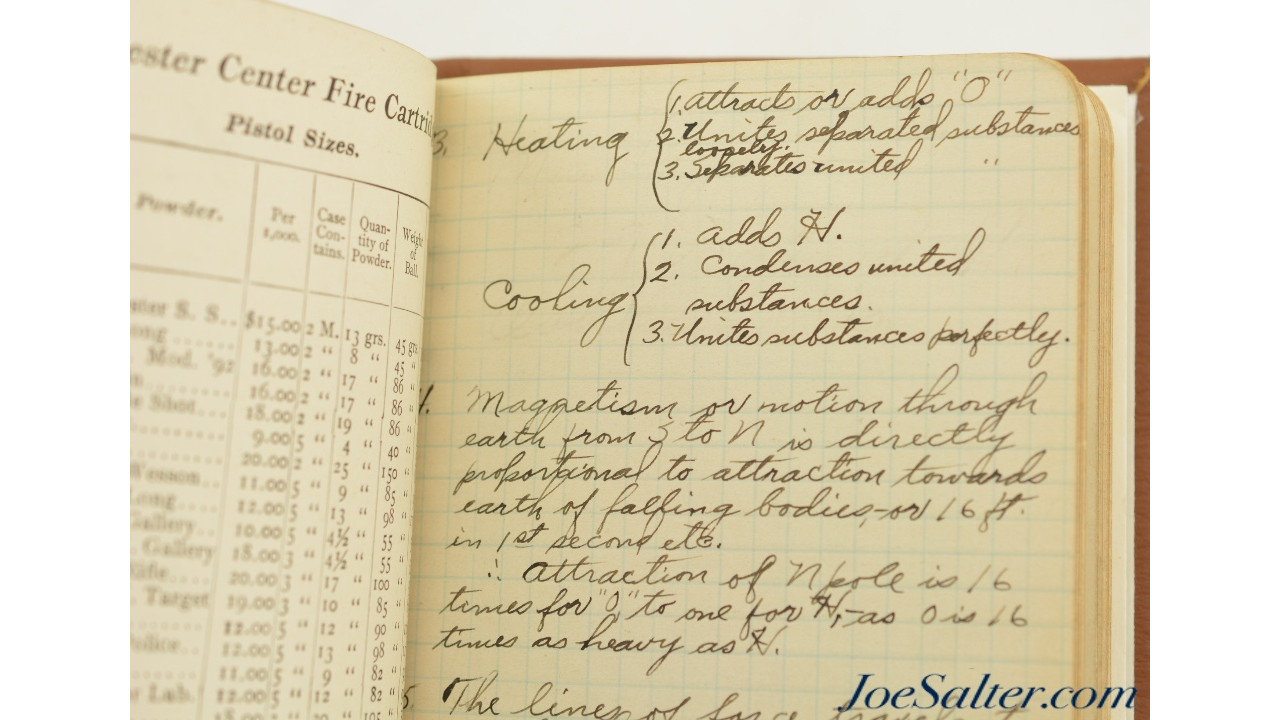 ester Center Fire Cartri
Pistol Sizes.
Powder.
Per 1,000.
Case Con-tains.
Quan-tity of Powder.
Weight of Ball.
S. S.. $15.00 2 M. 13 grs. 45 grs.
ong ...... 13.00 2 “ 8 “ 45 “
Mod. '92 16.00 2 “ 17 “ 86 “
16.00 2 “ 17 “ 86 “
Shot... 18.00 2 “ 19 “ 86 “
9.00 5 “ 4 “ 40 “
20.00 2 “ 25 “ 150 “
Wesson.... 11.00 5 “ 9 “ 85 “
Long.... 12.00 5 “ 13 “ 98 “
Gallery.. 10.00 5 “ 4½ “ 55 “
Gallery 18.00 3 “ 4½ “ 55 “
20.00 3 “ 17 “ 100 “
Target 19.00 3 “ 10 “ 85 “
12.00 5 “ 12 “ 90 “
olice.. 12.00 5 “ 13 “ 98 “
11.00 5 “ 9 “ 82 “
Lab. 12.00 5 “ 12 “ 82 “
3. Heating
1. attracts or adds "O"
2. Unites separated substances
loosely.
3. Separates united "
Cooling
1. adds H.
2. Condenses united
substances.
3. Unites substances perfectly.
4. Magnetism or motion through
earth from S to N is directly
proportional to attraction towards
earth of falling bodies,-or 16 ft.
in 1st second etc.
∴ attraction of N pole is 16
times for "O" to one for H,-as O is 16
times as heavy as H.
5. The lines of force
JoeSalter.com